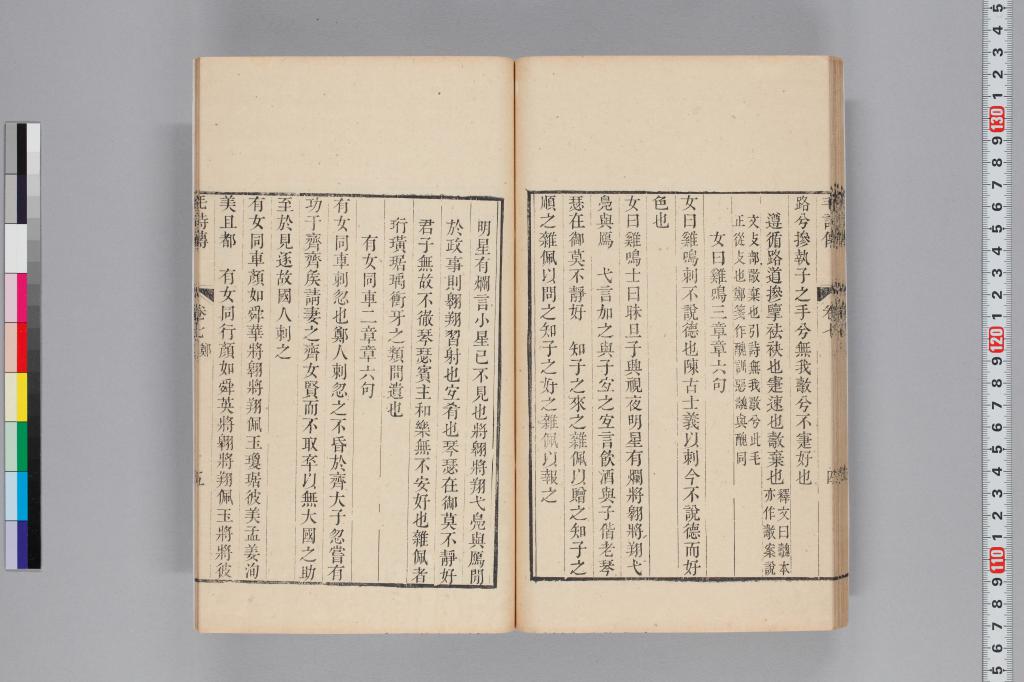 路兮摻執子之手兮無我㪣兮不寁好也
遵循路道摻擥袪袂也寁速也㪣棄也釋文曰魗本亦作㪣案說
文攴部㪣棄也引詩無我㪣兮此毛
正從攴也鄭箋作醜訓惡議與醜同
女曰雞鳴三章章六句
女曰雞鳴刺不說德也陳古士義以刺今不說德而好
色也
女曰雞鳴士曰昧旦子興視夜明星有爛將翱將翔弋
鳧與鴈　弋言加之與子宜之宜言飲酒與子偕老琴
瑟在御莫不靜好　知子之來之雜佩以贈之知子之
順之雜佩以問之知子之好之雜佩以報之
明星有爛言小星已不見也將翱將翔弋鳧與鴈閒
於政事則翱翔習射也宜肴也琴瑟在御莫不靜好
君子無故不徹琴瑟賓主和樂無不安好也雜佩者
珩璜琚瑀衝牙之類問遺也
有女同車二章章六句
有女同車刺忽也鄭人刺忽之不昏於齊大子忽嘗有
功于齊齊矦請妻之齊女賢而不取卒以無大國之助
至於見逐故國人刺之
有女同車顏如舜華將翱將翔佩玉瓊琚彼美孟姜洵
美且都　有女同行顏如舜英將翱將翔佩玉將將彼
毛詩傳　卷七　鄭　五